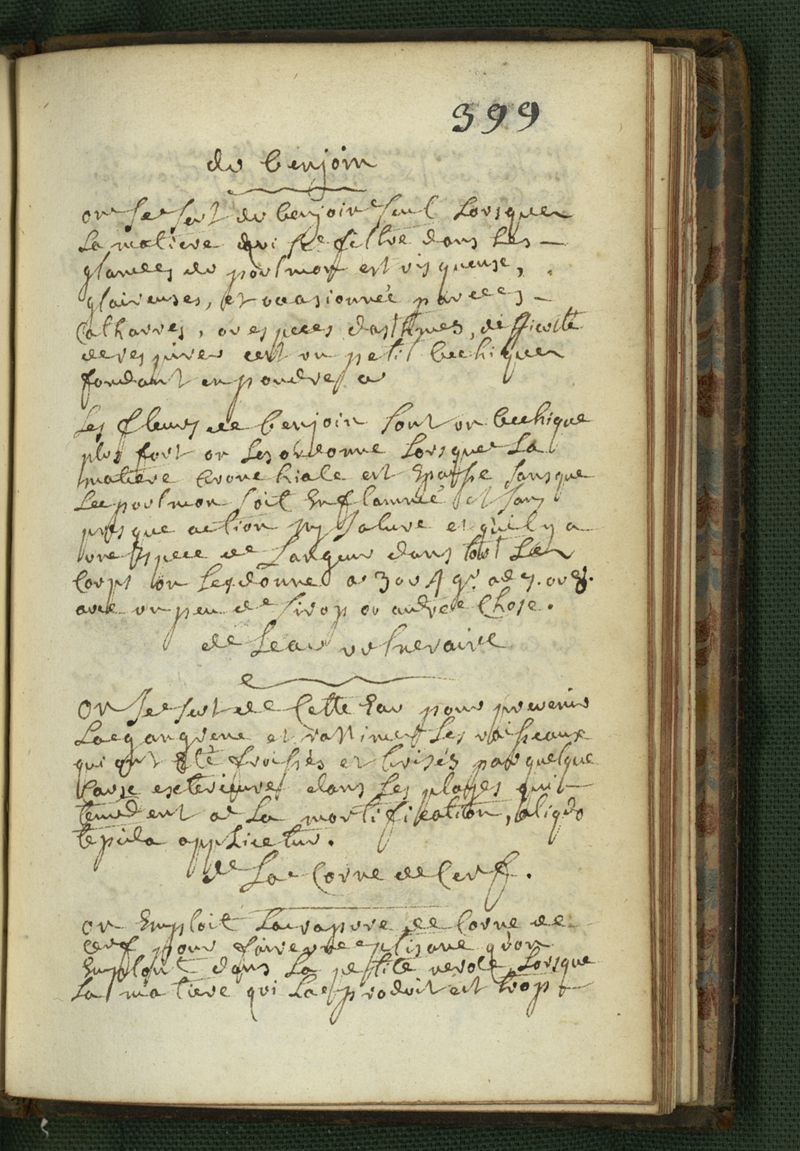 399
du benjoin
on se sert du benjoin seul lorsque
la matiere qui se filtre dans les
glandes du poulmon est visqueuse,
glaireuses, et occasionnée par des
catharres, ou especes dasthmes, difficulté
de respirer cest un petit bechique
fondant en poudre
Les fleurs de benjoin sont un bechique
plus fort on les ordonne lorsque La
matiere bronchiale est Epaisse sans que
Le poulmon soit Enflammé et sans
presque action ny salive et quil y a
une Espece de Langeur dans tout Le
Corps on Les donne a 3 ou 4 gr. a 7. ou 8.
avec un peu de sirop ou autre Chose.
de Leau vulneraire
on se sert de Cette Eau pour prevenir
La gangrene et ranimer Les vaisseaux
qui ont été froissés et brisés par quelque
Cause exterieure dans Les playes qui
tendent a La mortification, aliqdo
tepida applicetur.
de La Corne de Cerf.
on Emploit La rapure de Corne de
cerf pour faire une ptisane quon
Emploit dans La petite verole Lorsque
La matiere qui La produit est trop